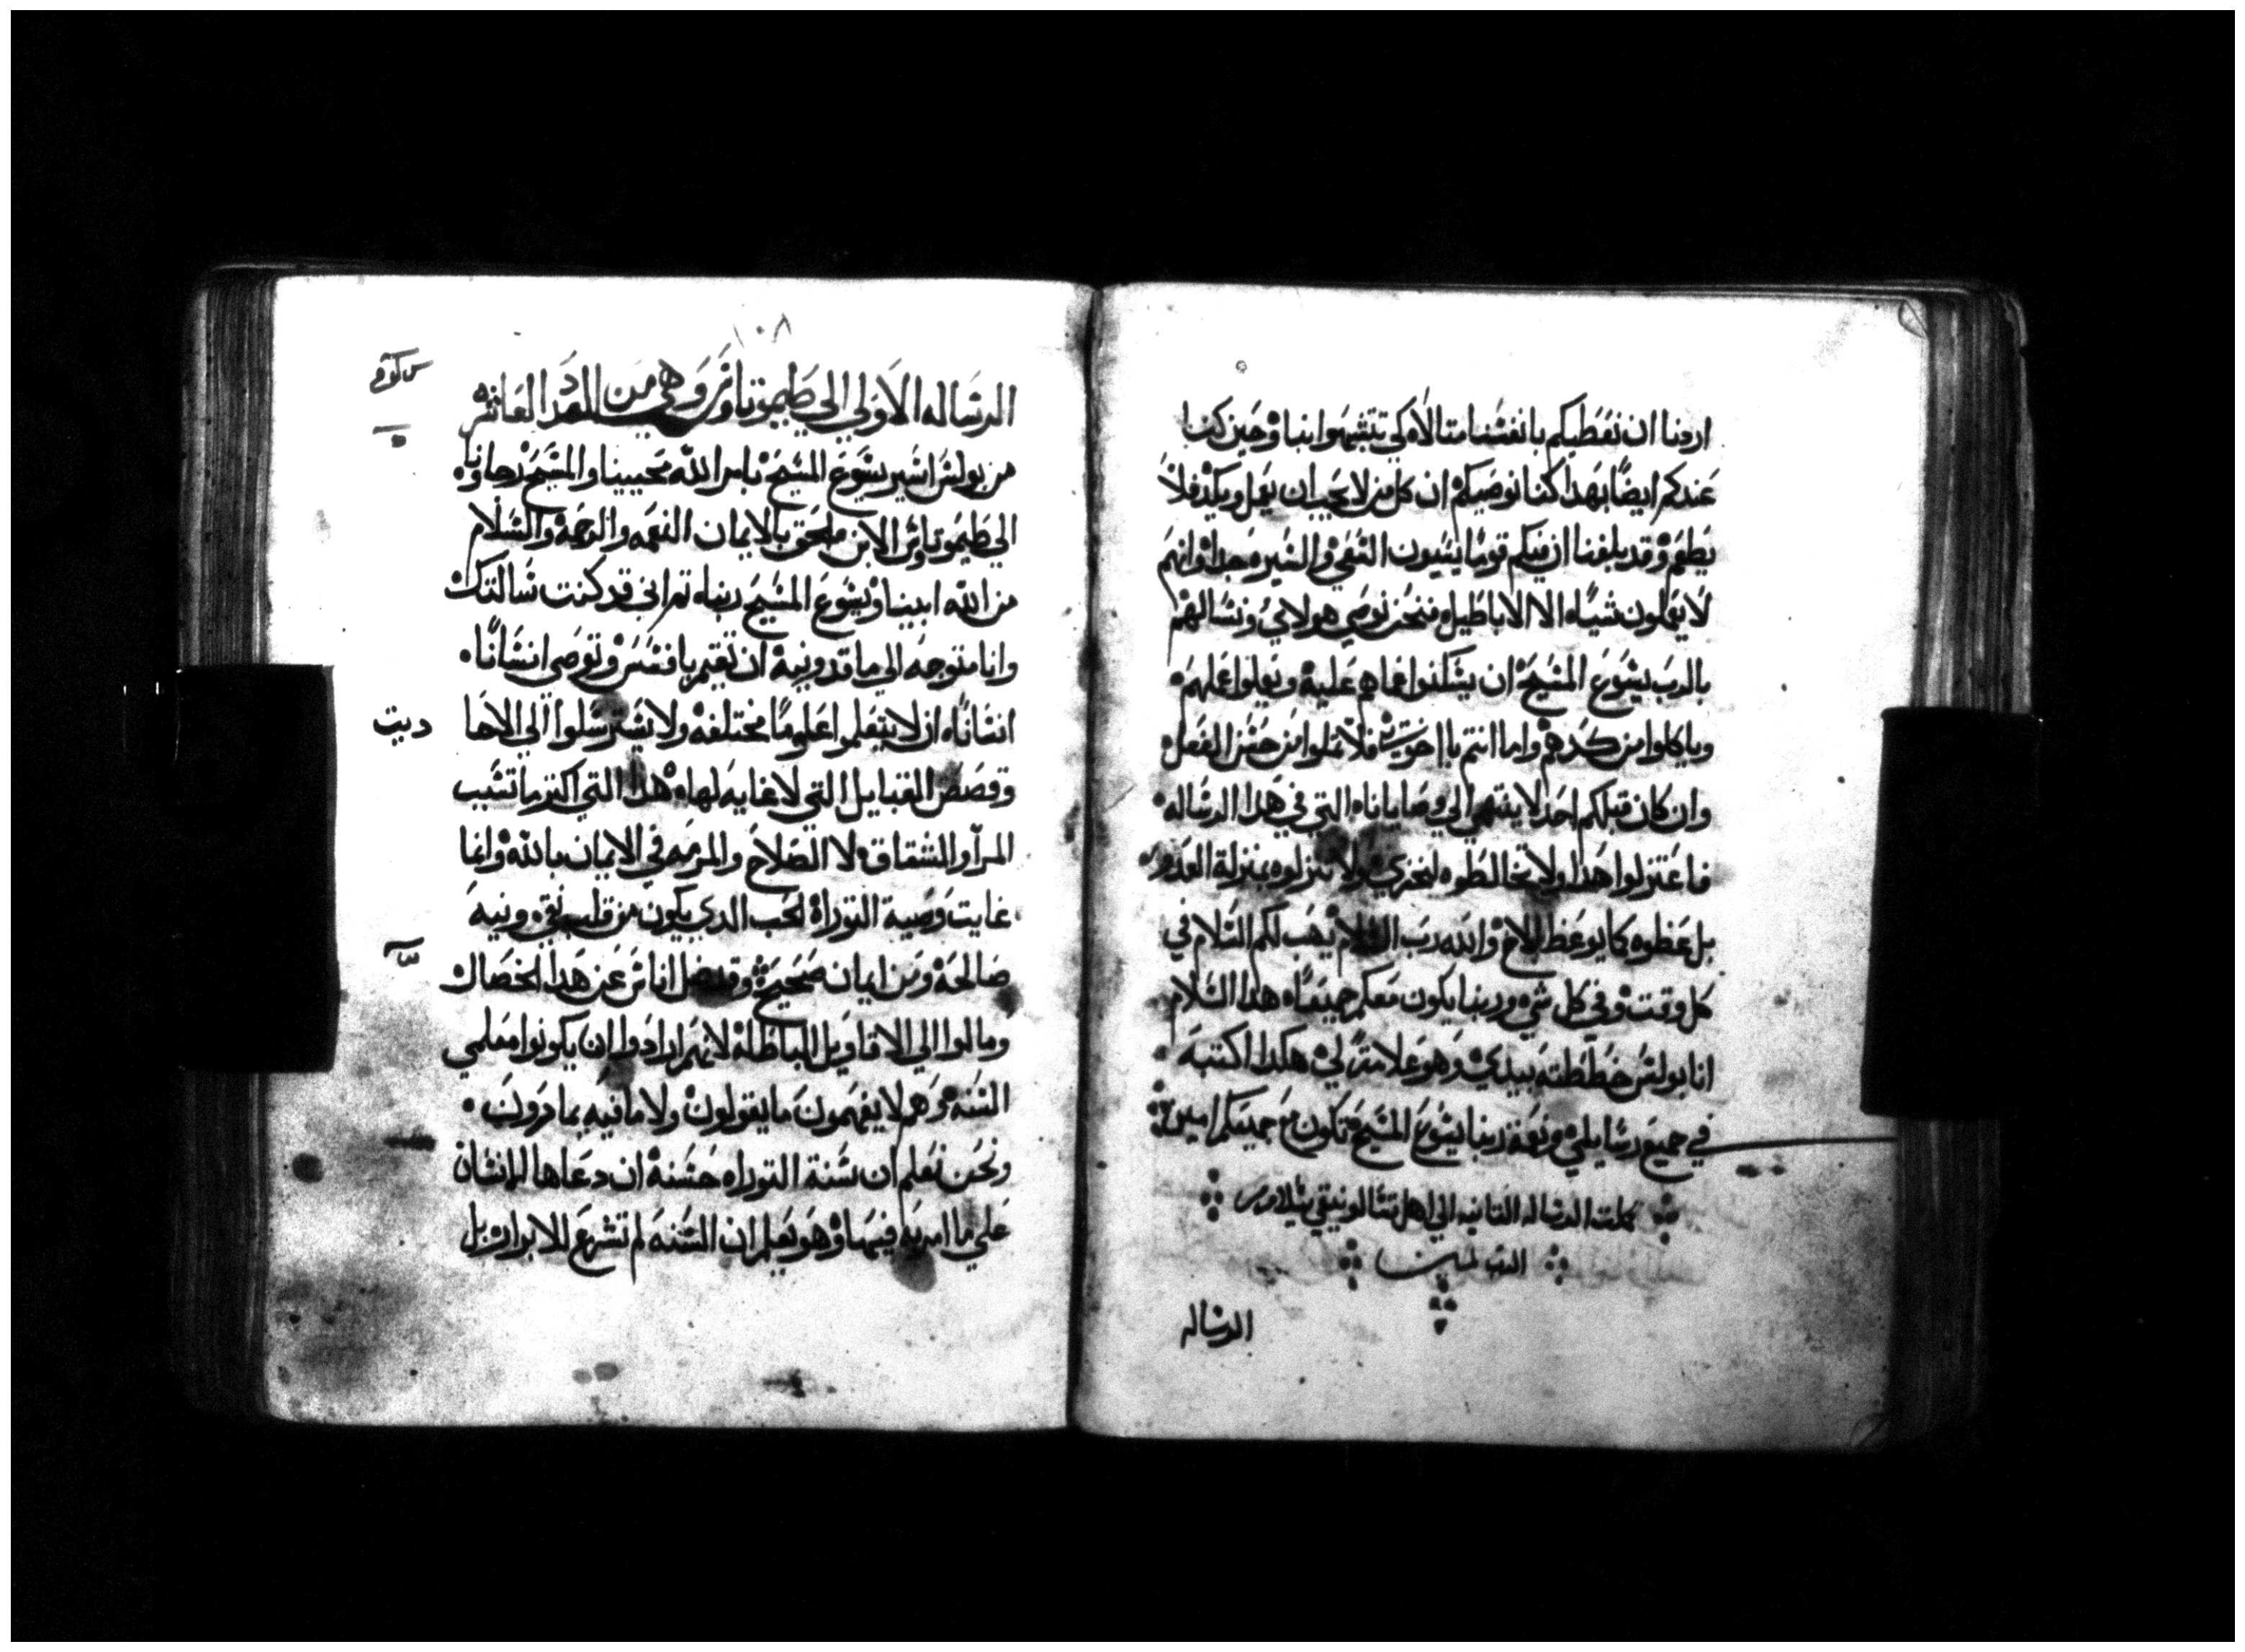 اردنا ان نعطيكم بانفسنا متالاه لكي تتشبهوا بنا وحين كنا
عندكم ايضًا بهدا كنا نوصيكم ان كل من لا يحب ان يعمل ويكد فلا
يطعم وقد بلغنا ان فيكم قومًا يسيون السيره جدا وانهم
لا يعملون شياه الا الاباطيل فنحن نوصي هولاي ونسالهم
بالرب يسوع المسيح ان يسكنوا عما هم عليه ويعملوا عملهم
وياكلوا من كدهم واما انتم يا اخوتي فلا تملوا من حسن الفعل
وان كان قبلكم احد لا ينتهي الي وصايانا التي في هدا الرساله
فاعتزلوا هدا ولا تخالطوه لخزي ولا تنزلوه بمنزلة العدو
بل عظوه كما يوعظ الاخ والله رب السلام يهب لكم السلام في
كل وقت وفي كل شي وربنا يكون معكم جميعًاه هدا السلام
انا بولس خططته بيدي وهو علامتي هكدا اكتبه
في جميع رسايلي ونعمة ربنا يسوع المسيح تكون مع جميعكم امين
كملت الرساله التانيه الي اهل تسالونيقي بسلام من
الرب امين
الرساله
١٠٨
الرساله الاولي الي طيموتاوس وهي من العدد العاشر
من بولس يسوع المسيح بامر الله محيينا والمسيح رجاونا
الي طيموتاوس الابن بالايمان النعمه والرحمه والسلام
من الله ابينا ويسوع المسيح ربناه اني قد كنت سالتك
وانا متوجه الي ماقدونية ان تقيم بافسس وتوصي انسانًا
انسانًاه ان لا يتعلموا علومًا مختلفه ولا يسترسلوا الي الاحا
ديت
وقصص القبايل التي لا غايه لهاه هدا التي اكتر ما تسبب
المرآ والشقاق لا الصلاح في الايمان بالله وانما
غايت وصية التوراة الحب الدي يكون من قلب نقي ونيه
صالحة ومن ايمان صحيح وقد ضل اناس عن هدا الخصال
ومالوا الي الاقاويل الباطلة لانهم ارادوا ان يكونوا معلمي
السنه وهم لا يفهمون ما يقولون ولا ما فيه يمارون
ونحن نعلم ان سنة التوراه حسنة ان دعاها الانسان
علي ما امر به فيها وهو يعلم ان السنه لم تشرع للابراره بل